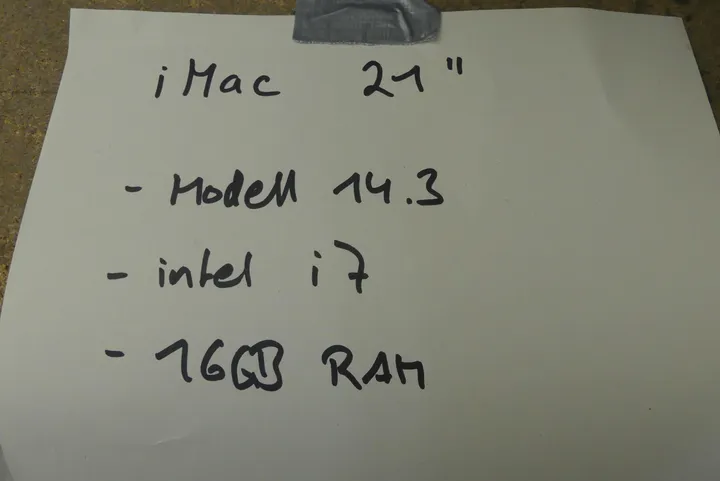 iMac 21"
- Modell 14.3
- intel i7
- 16GB RAM